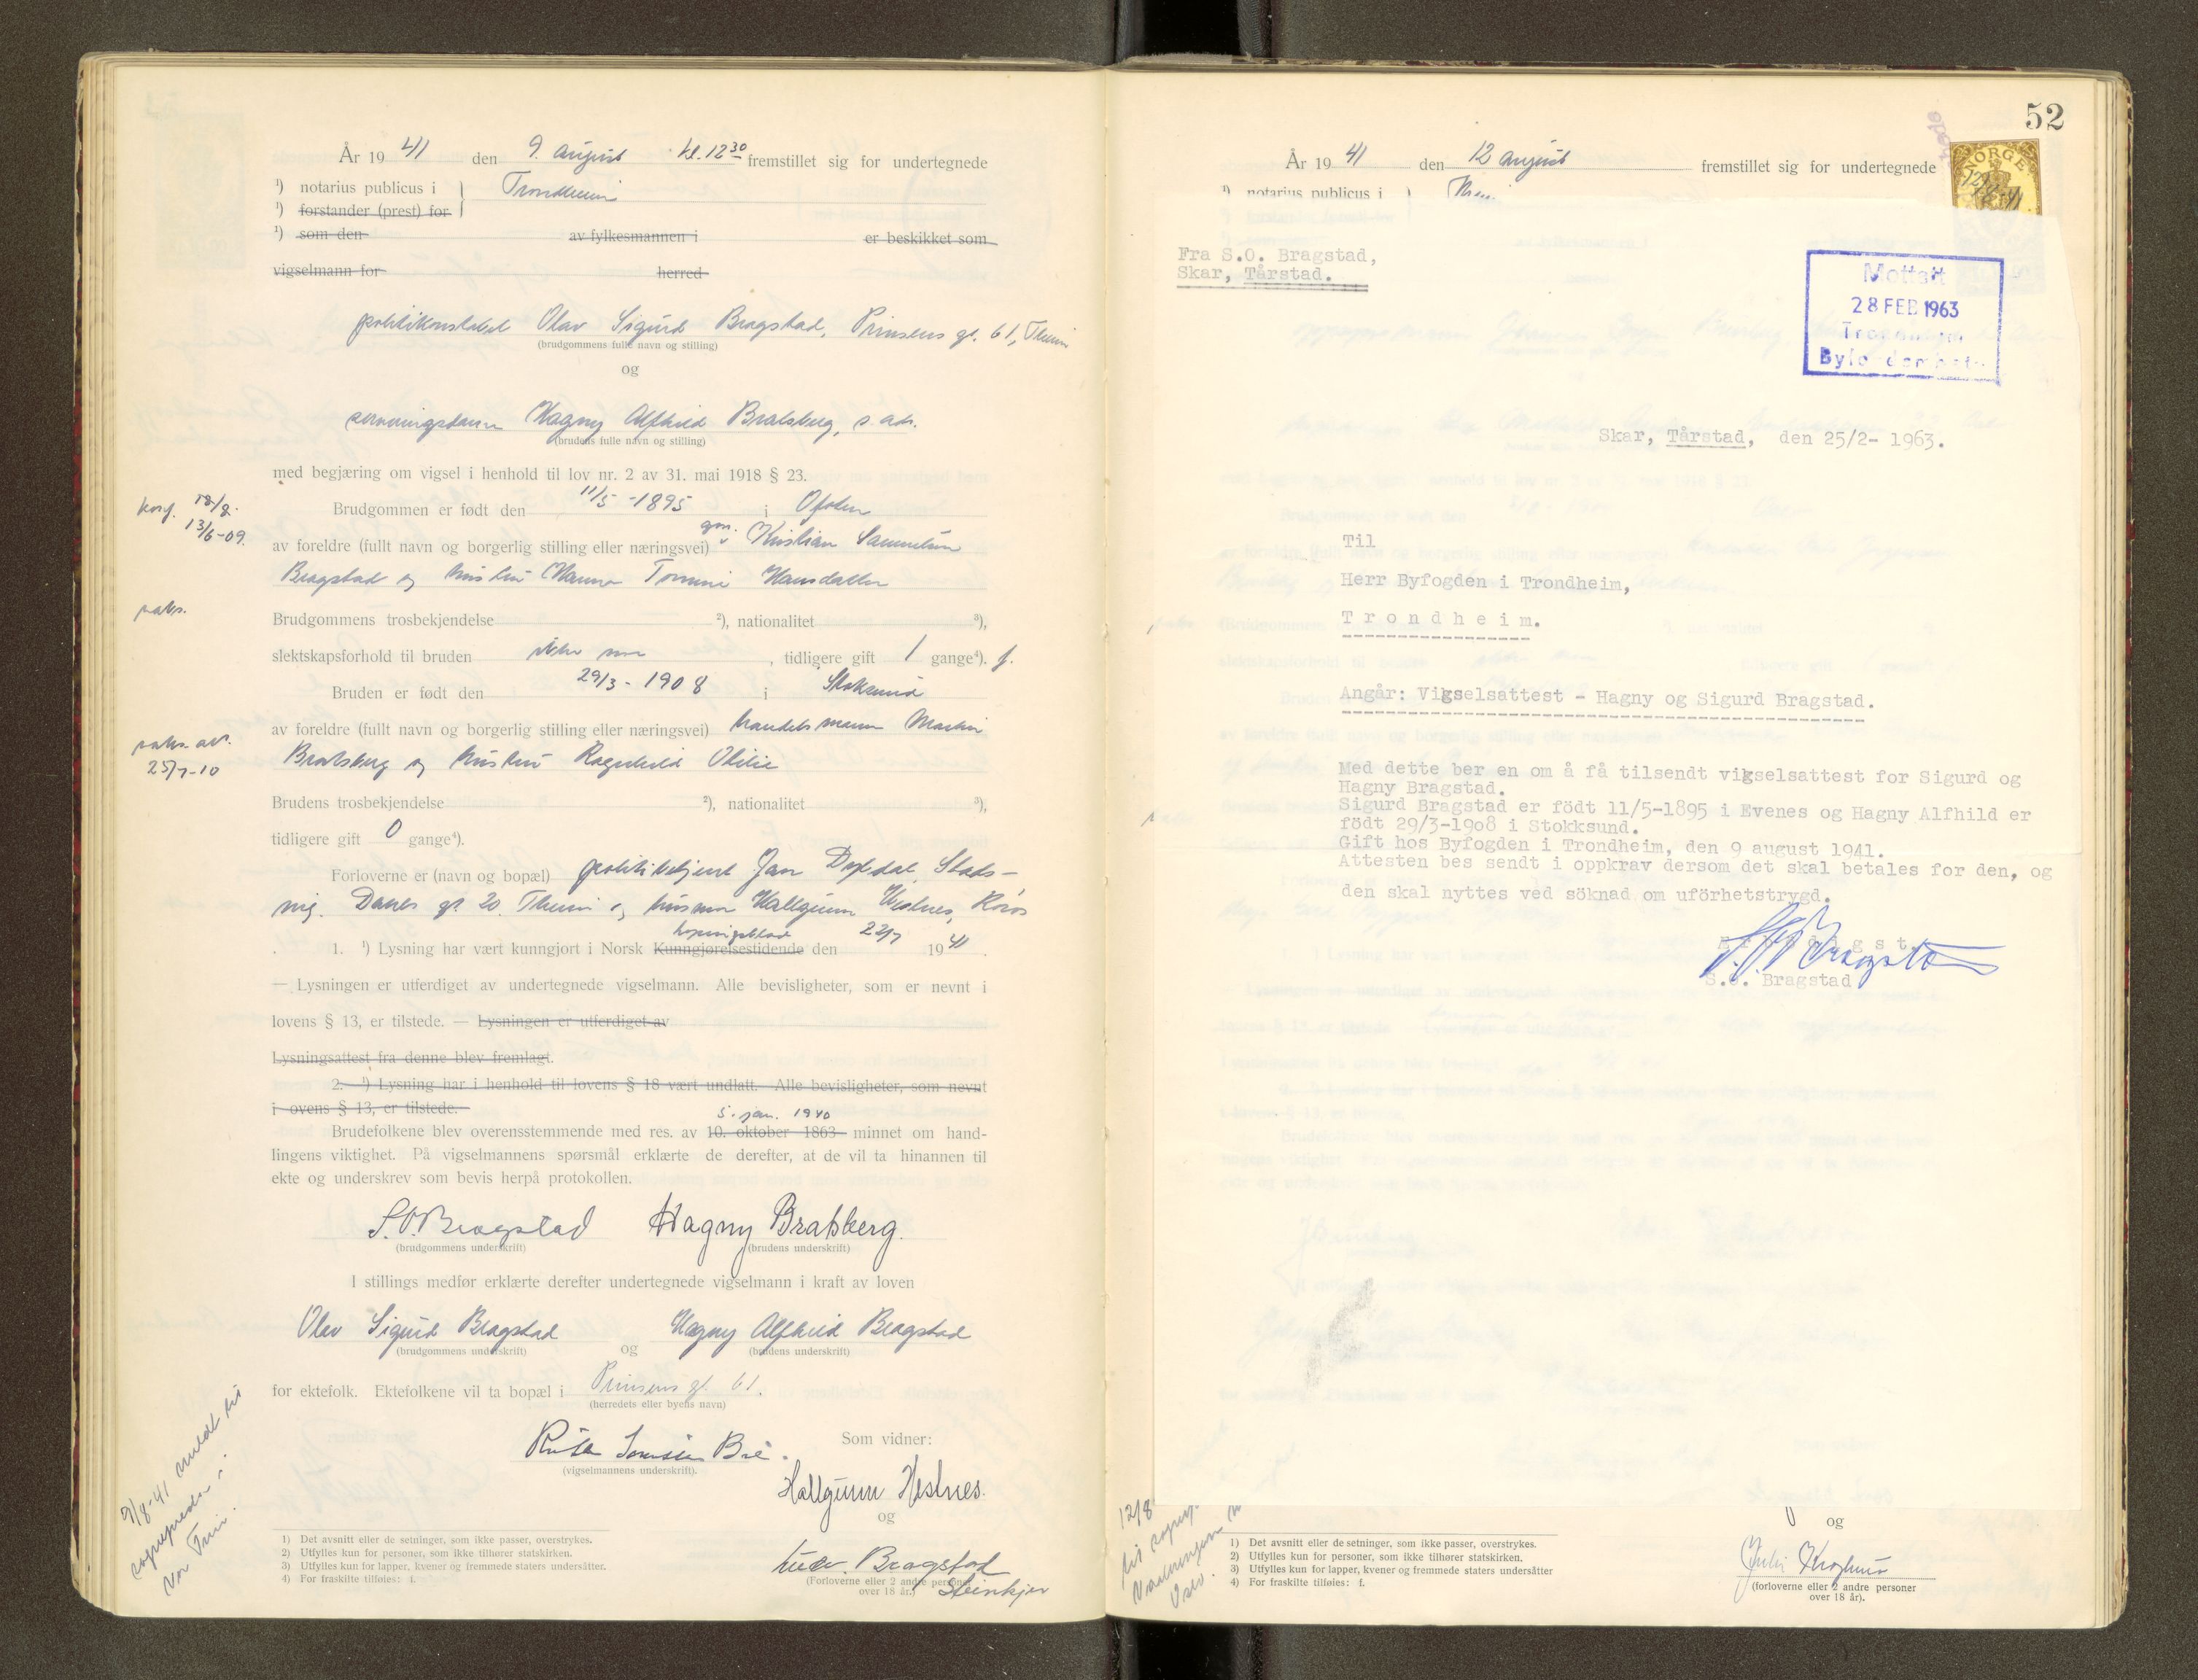 År 19 41 den 9. august kl. 12 30 fremstillet sig for undertegnede
¹) notarius publicus i Trondheim
¹) forstander (prest) for
¹) som den av fylkesmannen i er beskikket som
vigselmann for herred
politikonstabel Olav Sigurd Bragstad, Prinsens gt. 61, Theim
(brudgommens fulle navn og stilling)
og
Hagny Alfhild Bratsberg, s. ads.
(brudens fulle navn og stilling)
med begjæring om vigsel i henhold til lov nr. 2 av 31. mai 1918 § 23.
Brudgommen er født den 11/5 - 1895 i Ofoten
13/6-09.
av foreldre (fullt navn og borgerlig stilling eller næringsvei) Kristian
Bragstad og hustru Hanna Hansdatter
Brudgommens trosbekjendelse ²), nationalitet ³),
slektskapsforhold til bruden , tidligere gift 1 gange⁴). f.
Bruden er født den 29/3 - 1908 i Stoksund
av foreldre (fullt navn og borgerlig stilling eller næringsvei) handelsmann Martin
25/7-10
Bratsberg og hustru Ragnhild Otilie
Brudens trosbekjendelse ²), nationalitet ³),
tidligere gift 0 gange⁴).
Forloverne er (navn og bopæl) politibetjent Jan
gt. 20. Theim og Hallgunn Hestnes, Röros
lysningsblad
1. ¹) Lysning har vært kunngjort i Norsk Kunngjørelsestidende den 22/7 19 41.
— Lysningen er utferdiget av undertegnede vigselmann. Alle bevisligheter, som er nevnt i
lovens § 13, er tilstede. — Lysningen er utferdiget av
Lysningsattest fra denne blev fremlagt.
2. ¹) Lysning har i henhold til lovens § 18 vært undlatt. Alle bevisligheter, som nevnt
i lovens § 13, er tilstede.
5. jan. 1940
Brudefolkene blev overensstemmende med res. av 10. oktober 1863 minnet om hand-
lingens viktighet. På vigselmannens spørsmål erklærte de derefter, at de vil ta hinannen til
ekte og underskrev som bevis herpå protokollen.
S.O. Bragstad Hagny Bratsberg.
(brudgommens underskrift) (brudens underskrift)
I stillings medfør erklærte derefter undertegnede vigselmann i kraft av loven
Olav Sigurd Bragstad og Hagny Alfhild Bragstad
(brudgommens underskrift) (brudens underskrift)
for ektefolk. Ektefolkene vil ta bopæl i Prinsens gt. 61.
(herredets eller byens navn)
(vigselmannens underskrift).
Som vidner:
Hallgunn Hestnes.
og
Bragstad
Steinkjer
(Forloverne eller 2 andre personer
over 18 år).
9/8-41 meldt til
1) Det avsnitt eller de setninger, som ikke passer, overstrykes.
2) Utfylles kun for personer, som ikke tilhører statskirken.
3) Utfylles kun for lapper, kvener og fremmede staters undersåtter.
4) For fraskilte tilføies: f.
52
År 19 41 den 12 august fremstillet sig for undertegnede
¹) notarius publicus i
NORGE
Fra S.O. Bragstad,
Skar, Tårstad.
Mottatt
28 FEB 1963
Trondheim
Byfogdembete
Skar, Tårstad, den 25/2- 1963.
Til
Herr Byfogden i Trondheim,
T r o n d h e i m.
Angår: Vigselsattest - Hagny og Sigurd Bragstad.
Med dette ber en om å få tilsendt vigselsattest for Sigurd og
Hagny Bragstad.
Sigurd Bragstad er födt 11/5-1895 i Evenes og Hagny Alfhild er
födt 29/3-1908 i Stokksund.
Gift hos Byfogden i Trondheim, den 9 august 1941.
Attesten bes sendt i oppkrav dersom det skal betales for den, og
den skal nyttes ved söknad om uförhetstrygd.
S.O. Bragstad
12/8
og
(forloverne eller 2 andre personer
over 18 år).
1) Det avsnitt eller de setninger, som ikke passer, overstrykes.
2) Utfylles kun for personer, som ikke tilhører statskirken.
3) Utfylles kun for lapper, kvener og fremmede staters undersåtter
4) For fraskilte tilføies: f.